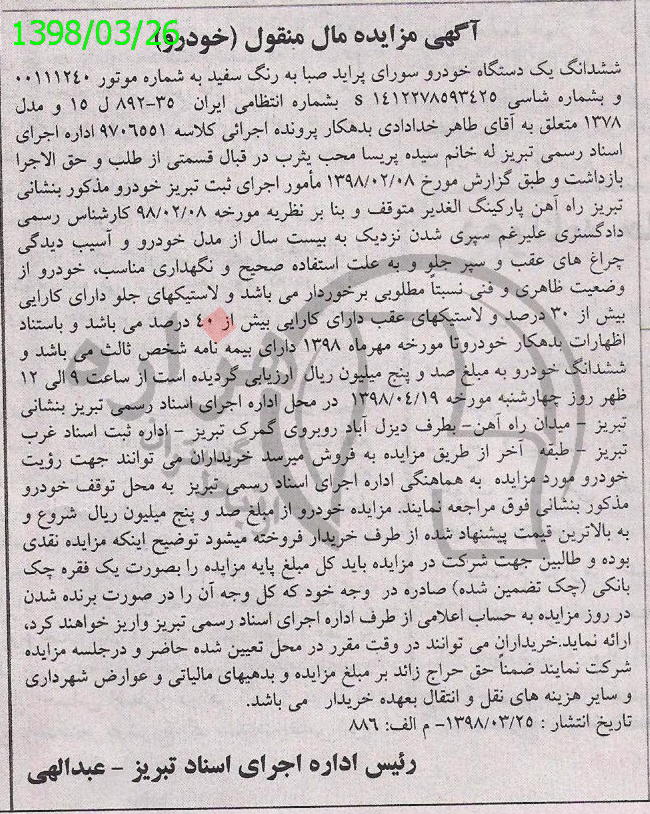 1398/03/26
آگهی مزایده مال منقول (خودرو)
ششدانگ یک دستگاه خودرو سورای پراید صبا به رنگ سفید به شماره موتور ۰۰۱۱۱۲۴۰
و بشماره شاسی s ۱۴۱۲۲۷۸۵۹۳۴۲۵ بشماره انتظامی ایران ۳۵-۸۹۲ ل ۱۵ و مدل
۱۳۷۸ متعلق به آقای طاهر خدادادی بدهکار پرونده اجرائی کلاسه ۹۷۰۶۵۵۱ اداره اجرای
اسناد رسمی تبریز له خانم سیده پریسا محب یثرب در قبال قسمتی از طلب و حق الاجرا
بازداشت و طبق گزارش مورخ ۱۳۹۸/۰۲/۰۸ مأمور اجرای ثبت تبریز خودرو مذکور بنشانی
تبریز راه آهن پارکینگ الغدیر متوقف و بنا بر نظریه مورخه ۹۸/۰۲/۰۸ کارشناس رسمی
دادگستری علیرغم سپری شدن نزدیک به بیست سال از مدل خودرو و آسیب دیدگی
چراغ های عقب و سپر جلو و به علت استفاده صحیح و نگهداری مناسب، خودرو از
وضعیت ظاهری و فنی نسبتاً مطلوبی برخوردار می باشد و لاستیکهای جلو دارای کارایی
بیش از ۳۰ درصد و لاستیکهای عقب دارای کارایی بیش از ۴۰ درصد می باشد و باستناد
اظهارات بدهکار خودروتا مورخه مهرماه ۱۳۹۸ دارای بیمه نامه شخص ثالث می باشد و
ششدانگ خودرو به مبلغ صد و پنج میلیون ریال ارزیابی گردیده است از ساعت ۹ الی ۱۲
ظهر روز چهارشنبه مورخه ۱۳۹۸/۰۴/۱۹ در محل اداره اجرای اسناد رسمی تبریز بنشانی
تبریز - میدان راه آهن- بطرف دیزل آباد روبروی گمرک تبریز - اداره ثبت اسناد غرب
تبریز - طبقه آخر از طریق مزایده به فروش میرسد خریداران می توانند جهت رؤیت
خودرو مورد مزایده به هماهنگی اداره اجرای اسناد رسمی تبریز به محل توقف خودرو
مذکور بنشانی فوق مراجعه نمایند. مزایده خودرو از مبلغ صد و پنج میلیون ریال شروع و
به بالاترین قیمت پیشنهاد شده از طرف خریدار فروخته میشود توضیح اینکه مزایده نقدی
بوده و طالبین جهت شرکت در مزایده باید کل مبلغ پایه مزایده را بصورت یک فقره چک
بانکی (چک تضمین شده) صادره در وجه خود که کل وجه آن را در صورت برنده شدن
در روز مزایده به حساب اعلامی از طرف اداره اجرای اسناد رسمی تبریز واریز خواهند کرد،
ارائه نماید.خریداران می توانند در وقت مقرر در محل تعیین شده حاضر و درجلسه مزایده
شرکت نمایند ضمناً حق حراج زائد بر مبلغ مزایده و بدهیهای مالیاتی و عوارض شهرداری
و سایر هزینه های نقل و انتقال بعهده خریدار می باشد.
تاریخ انتشار : ۱۳۹۸/۰۳/۲۵- م الف: ۸۸۶
رئیس اداره اجرای اسناد تبریز - عبدالهی